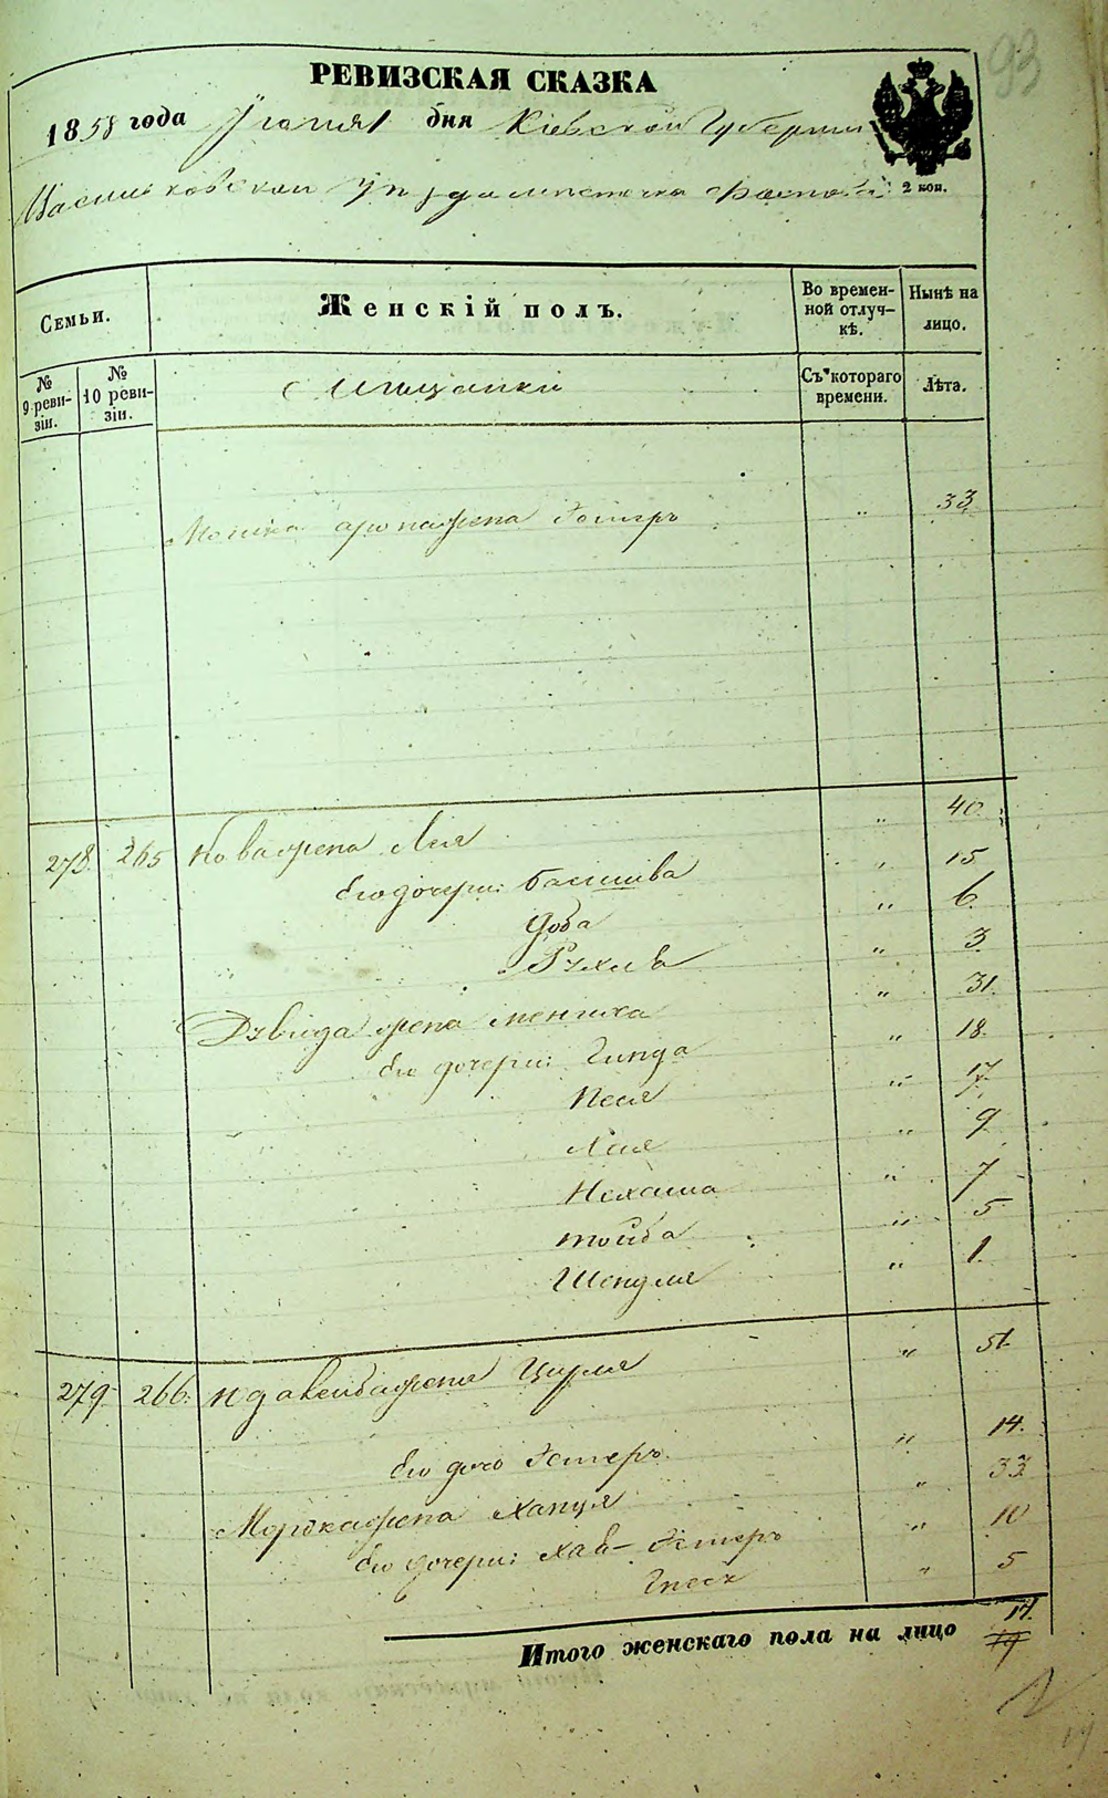 93
РЕВИЗСКАЯ СКАЗКА
1858 года Iюня 1 дня Кіевской Губерніи
Васильковскаго уѣзда мѣстечка Фастова
2 коп.
Семьи. Женскій полъ. Во временной отлучкѣ. Нынѣ на лицо.
№ 9 ревизіи. № 10 ревизіи. Мѣщанки Съ котораго времени. Лѣта.
Мошка жена Эстеръ " 33
278. 265 жена Лея " 40.
Его дочери: Басшива " 15
Доба " 6.
Рухля " 3
Двида жена " 31.
Его дочери: Гинда " 18.
Песя " 17
Хая " 9
Нехама " 7
тойба " 5
Шендля " 1.
279. 266. жена Цирля " 51.
Его дочь Эстеръ " 14.
Мордка жена Ханця " 33
Его дочери: Хая-Эстеръ " 10
" 5
Итого женскаго пола на лицо 17.
19